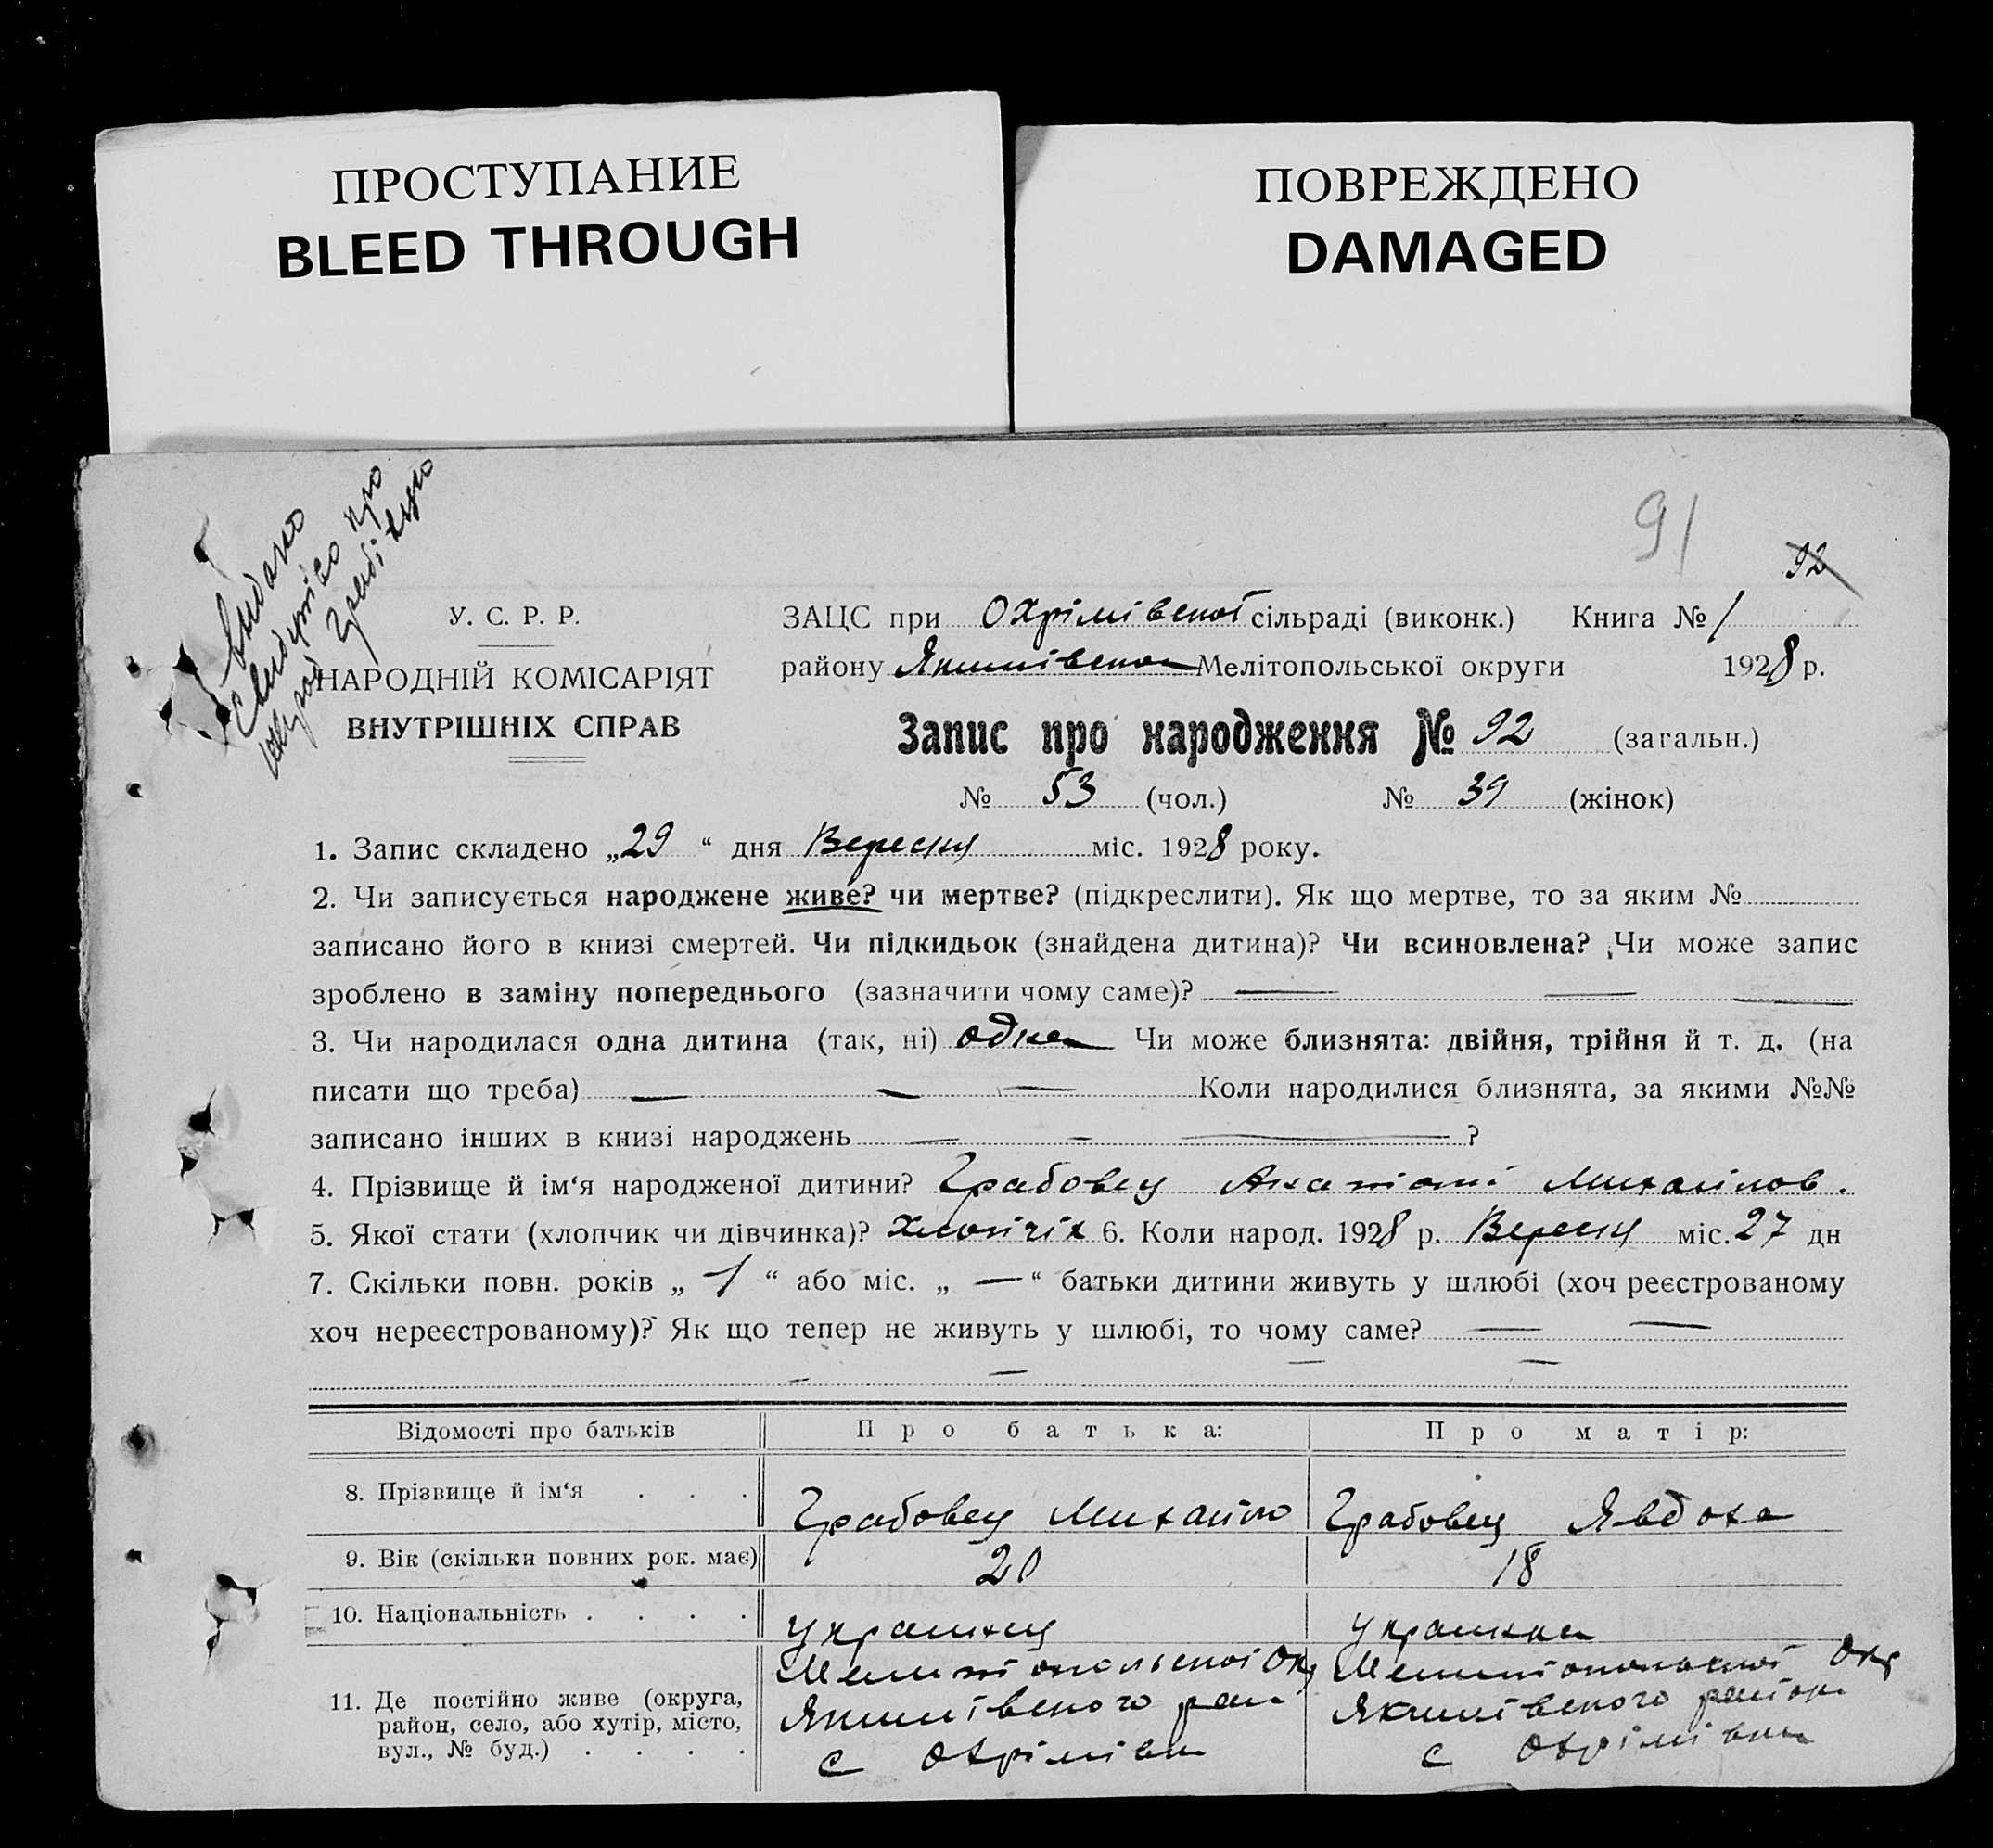 ПРОСТУПАНИЕ
BLEED THROUGH
ПОВРЕЖДЕНО
DAMAGED
Видано
свидоцтво про
91
92
У. С. Р. Р.
НАРОДНІЙ КОМІСАРІЯТ
ВНУТРІШНІХ СПРАВ
ЗАЦС при Охрімівської сільраді (виконк.) Книга № 1
району Якимівського Мелітопольської округи 1928 р.
Запис про народження № 92 (загальн.)
№ 53 (чол.) № 39 (жінок)
1. Запис складено „29“ дня Вересня міс. 1928 року.
2. Чи записується народжене живе? чи мертве? (підкреслити). Як що мертве, то за яким №
записано його в книзі смертей. Чи підкидьок (знайдена дитина)? Чи всиновлена? Чи може запис
зроблено в заміну попереднього (зазначити чому саме)? — — —
3. Чи народилася одна дитина (так, ні) одна Чи може близнята: двійня, трійня й т. д. (на
писати що треба) — — — Коли народилися близнята, за якими №№
записано інших в книзі народжень — — — ?
4. Прізвище й ім‘я народженої дитини? Грабовец Анатолій Михайлов.
5. Якої стати (хлопчик чи дівчинка)? 6. Коли народ. 1928 р. Вересня міс. 27 дн
7. Скільки повн. років „ 1 “ або міс. „ — “ батьки дитини живуть у шлюбі (хоч реєстрованому
хоч нереєстрованому)? Як що тепер не живуть у шлюбі, то чому саме? — —
— — — —
Відомості про батьків Про батька: Про матір:
8. Прізвище й ім‘я . . . Грабовец Михайло Грабовец Явдоха
9. Вік (скільки повних рок. має) 20 18
10. Національність . . . . украинец украинка
11. Де постійно живе (округа, район, село, або хутір, місто, вул., № буд.) . . . .
Мелитопольської Окр
Якимівського рай
с Охрімівка
Мелитопольської Окр
Якимівського району
с Охрімівка